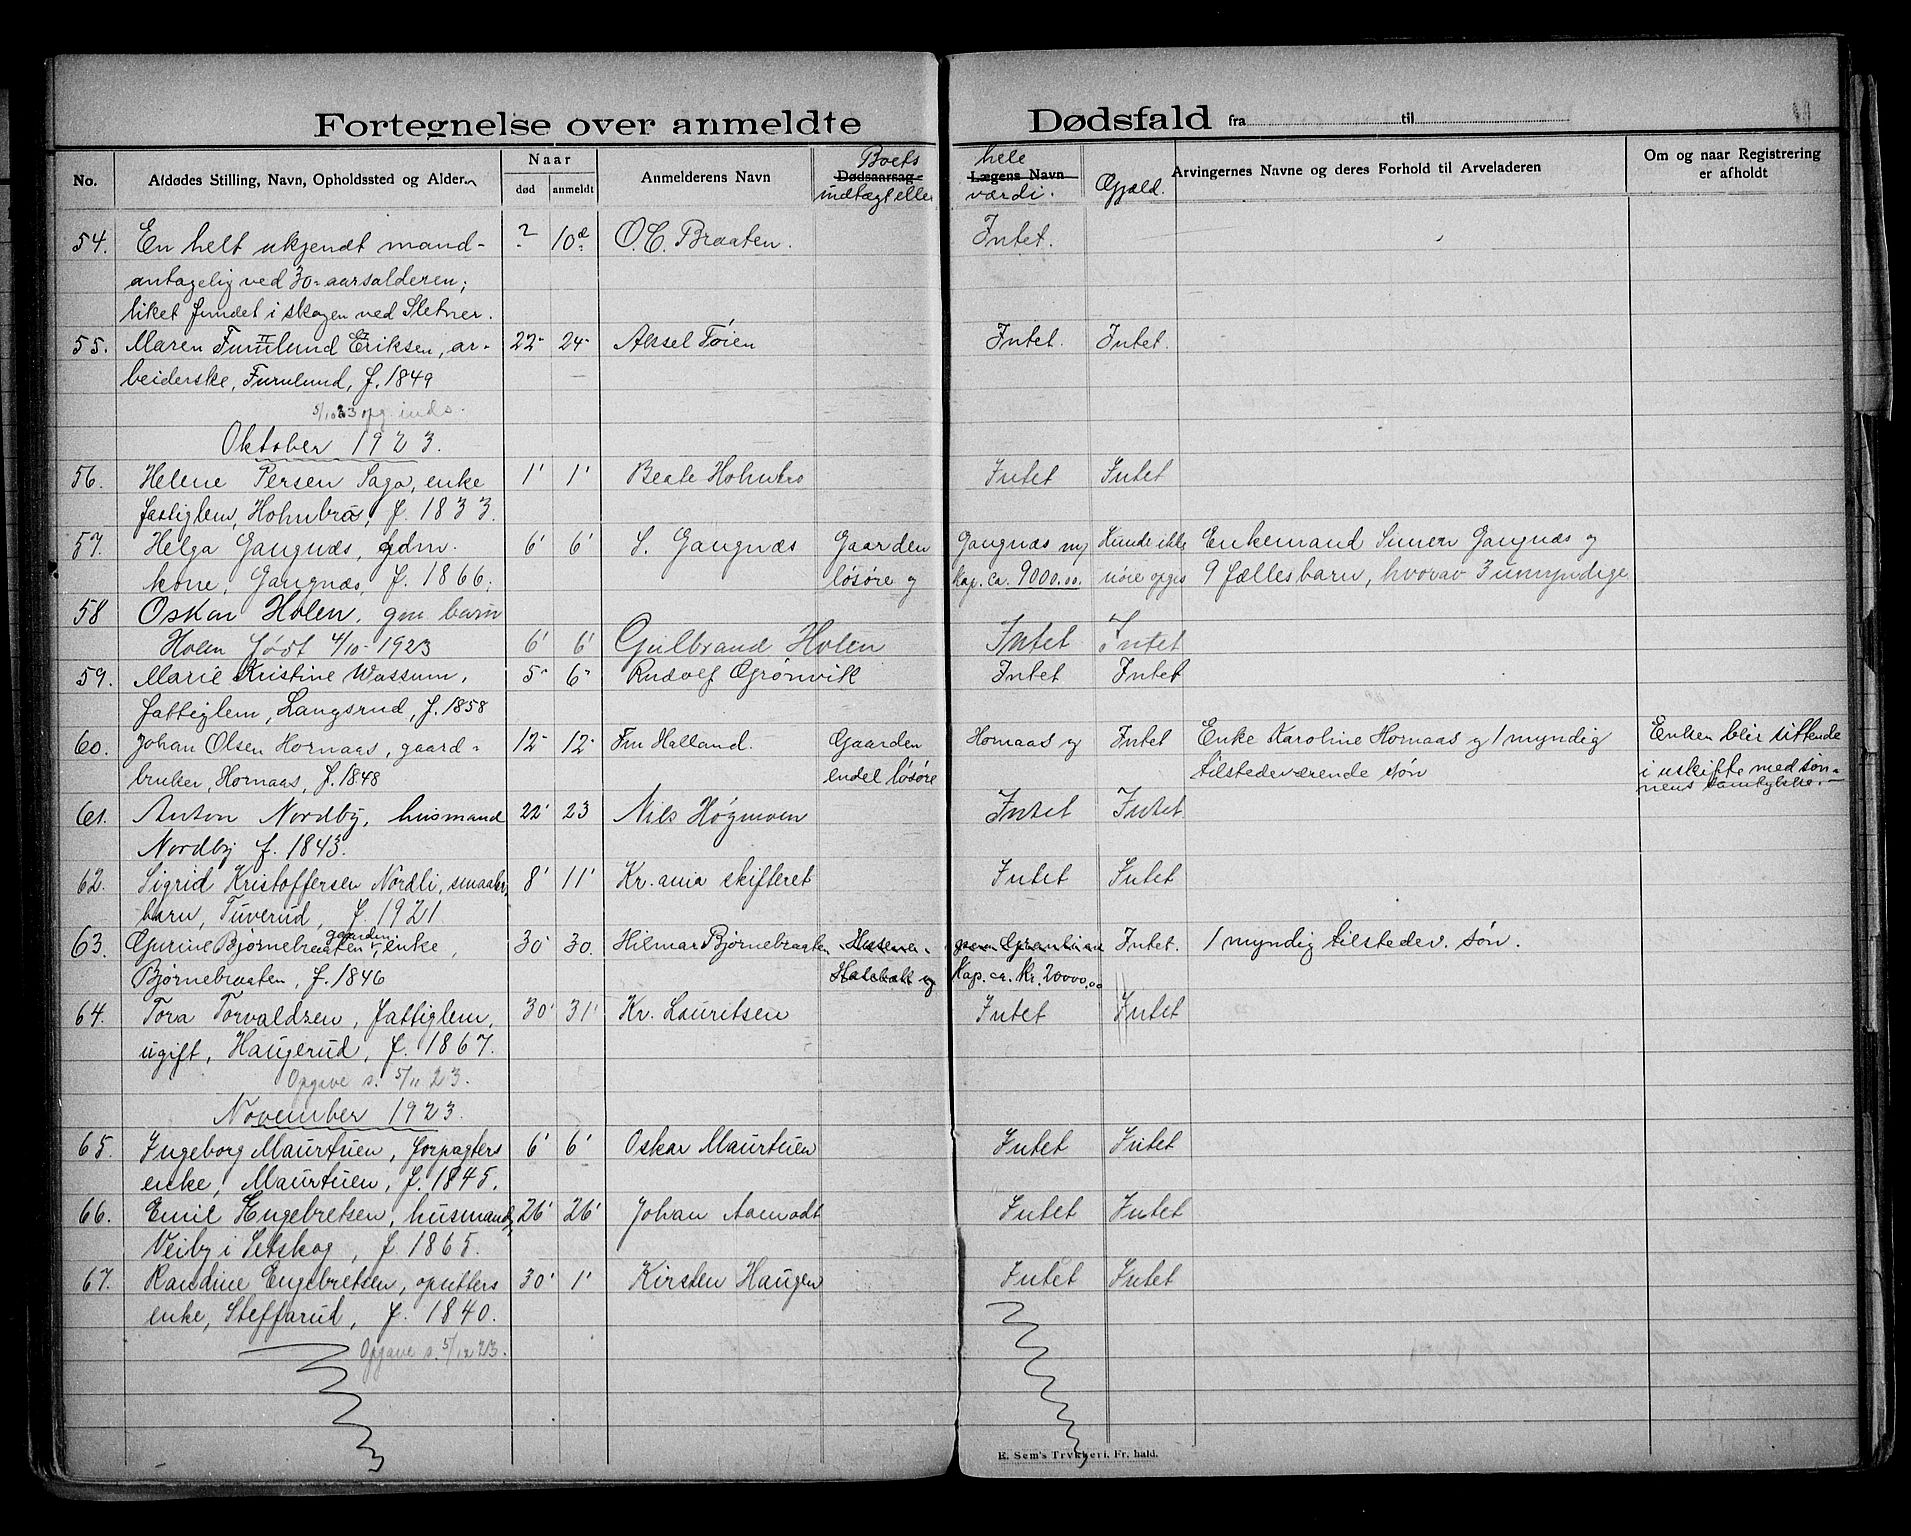 Fortegnelse over anmeldte Dødsfald fra til
No. Afdødes Stilling, Navn, Opholdssted og Alder. Naar død anmeldt Anmelderens Navn Dødsaarsag Lægens Navn Arvingernes Navne og deres Forhold til Arveladeren Om og naar Registrering er afholdt
Boets hele
indtægt eller værdi. Gjæld.
54. En helt ukjendt mand- ? 10de O. C. Braaten. Intet.
antagelig ved 30-aarsalderen;
liket fundet i skogen ved Sletner.
55. Maren Furulund Eriksen, ar- 22 24 Aksel Tøien Intet. Intet.
beiderske, Furulund, f. 1849
5/10 23 opg. inds.
Oktober 1923.
56. Helene Persen Saga, enke 1' 1' Beate Holmbro Intet Intet
fattiglem, Holmbrå, f. 1833.
57. Helga Gangnæs, gdm. 6' 6' S. Gangnæs Gaarden Gangnæs m/ Kunde ikke Enkemand Simen Gangnæs og
kone, Gangnæs, f. 1866. løsøre og Kap. ca. 9000.00. nøie opgis 9 fællesbarn, hvorav 3 umyndige
58 Oskar Holen, gm barn
Holen født 4/10-1923 6' 6' Gulbrand Holen Intet Intet
59. Marie Kristine Wassum, 5 6 Rudolf Grønvik Intet Intet
fattiglem, Langsrud, f. 1858
60. Johan Olsen Hornaas, gaard- 12 12 Fru Halland. Gaarden Hornaas og Intet Enke Karoline Hornaas og 1 myndig Enken blir sittende
bruker, Hornaas, f. 1848 endel løsøre tilstedeværende søn i uskifte med søn-
nens samtykke.
61. Anton Nordby, husmand 22' 23 Nils Høgmoen Intet Intet
Nordby f. 1843.
62. Sigrid Kristoffersen Nordli, smaabr. 8' 11' Kr.ania skifteret Intet Intet
barn, Tuverud, f. 1921
63. Gurine Bjørnebraaten, gaardm. enke, 30' 30. Hilmar Bjørnebraaten Intet. 1 myndig tilstedev. søn.
Bjørnebraaten, f. 1846 og Kap. ca. Kr. 20000.00
64. Tora Torvaldsen, fattiglem, 30' 31' Kr. Lauritsen Intet Intet
ugift, Haugerud, f. 1867.
Opgave s. 5/11 23.
November 1923.
65. Ingeborg Maurtuen, forpagters 6' 6' Oskar Maurtuen Intet Intet
enke, Maurtuen, f. 1845.
66. Emil Engebretsen, husmand, 26' 26' Johan Aamodt Intet Intet
Veiby i Setskog, f. 1865.
67. Randine Engebretsen, opsitters 30' 1' Kirsten Haugen Intet Intet
enke, Steffarud, f. 1840.
Opgave s. 5/12 23.
E. Sem's Trykkeri, Fr. hald.